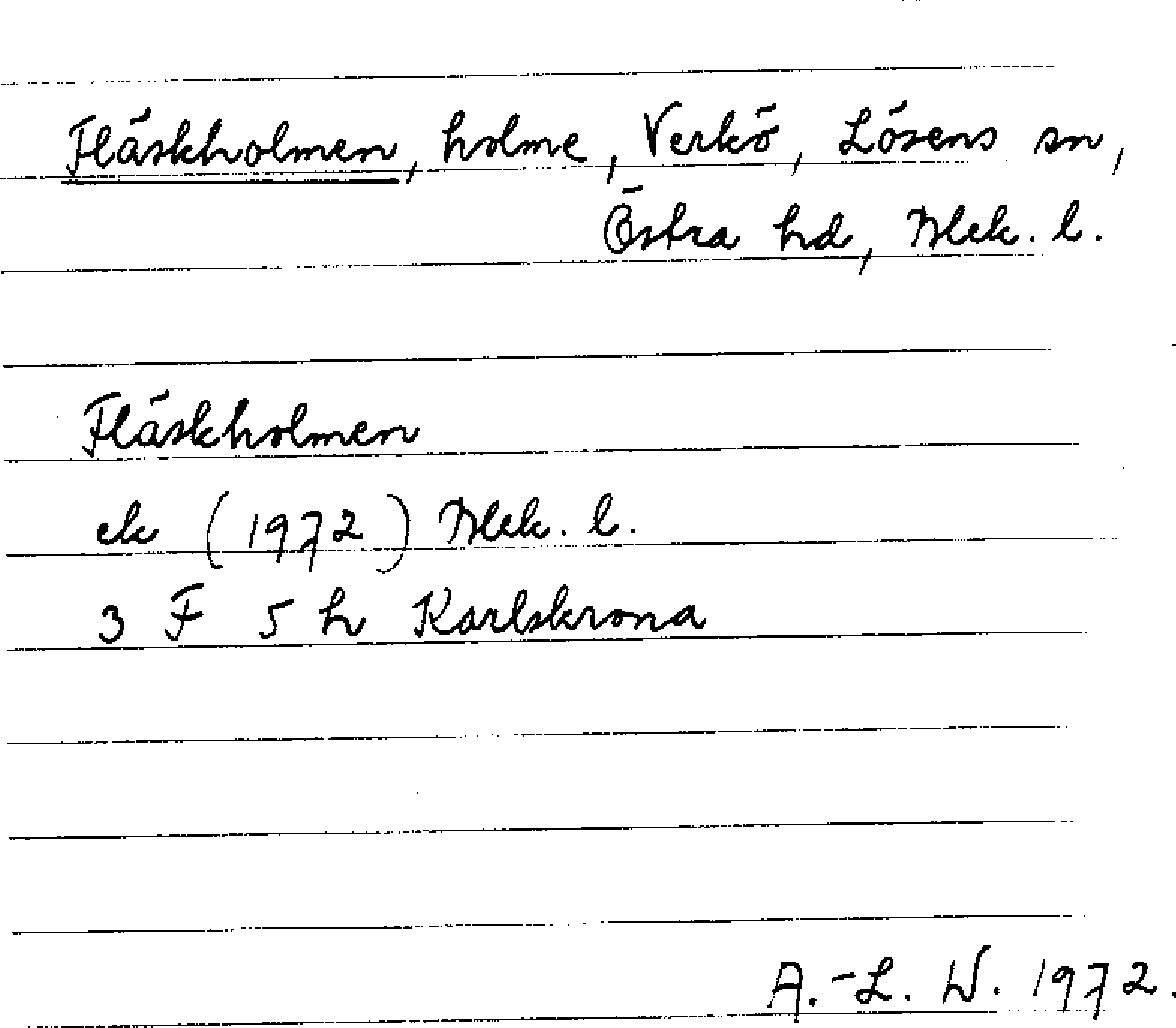 Fläskholmen, holme, Verkö, Lösens sn,
Östra hd, Blek. l.
Fläskholmen
ek (1972) Blek. l.
3 F 5 h Karlskrona
A.-L. W. 1972.